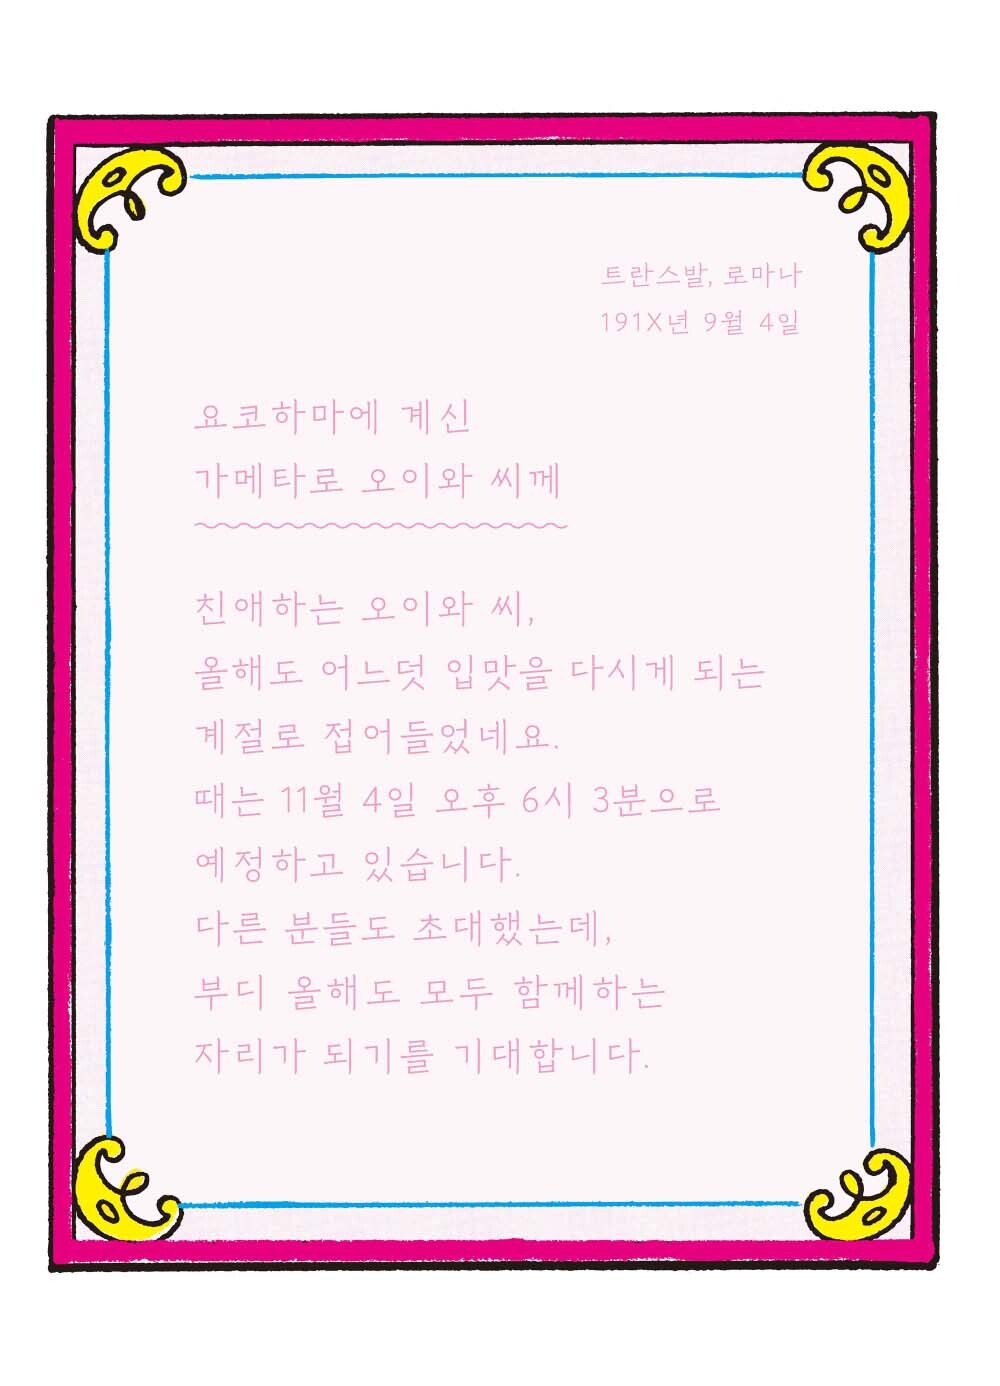 트란스발, 로마나
191X년 9월 4일
요코하마에 계신
가메타로 오이와 씨께
친애하는 오이와 씨,
올해도 어느덧 입맛을 다시게 되는
계절로 접어들었네요.
때는 11월 4일 오후 6시 3분으로
예정하고 있습니다.
다른 분들도 초대했는데,
부디 올해도 모두 함께하는
자리가 되기를 기대합니다.